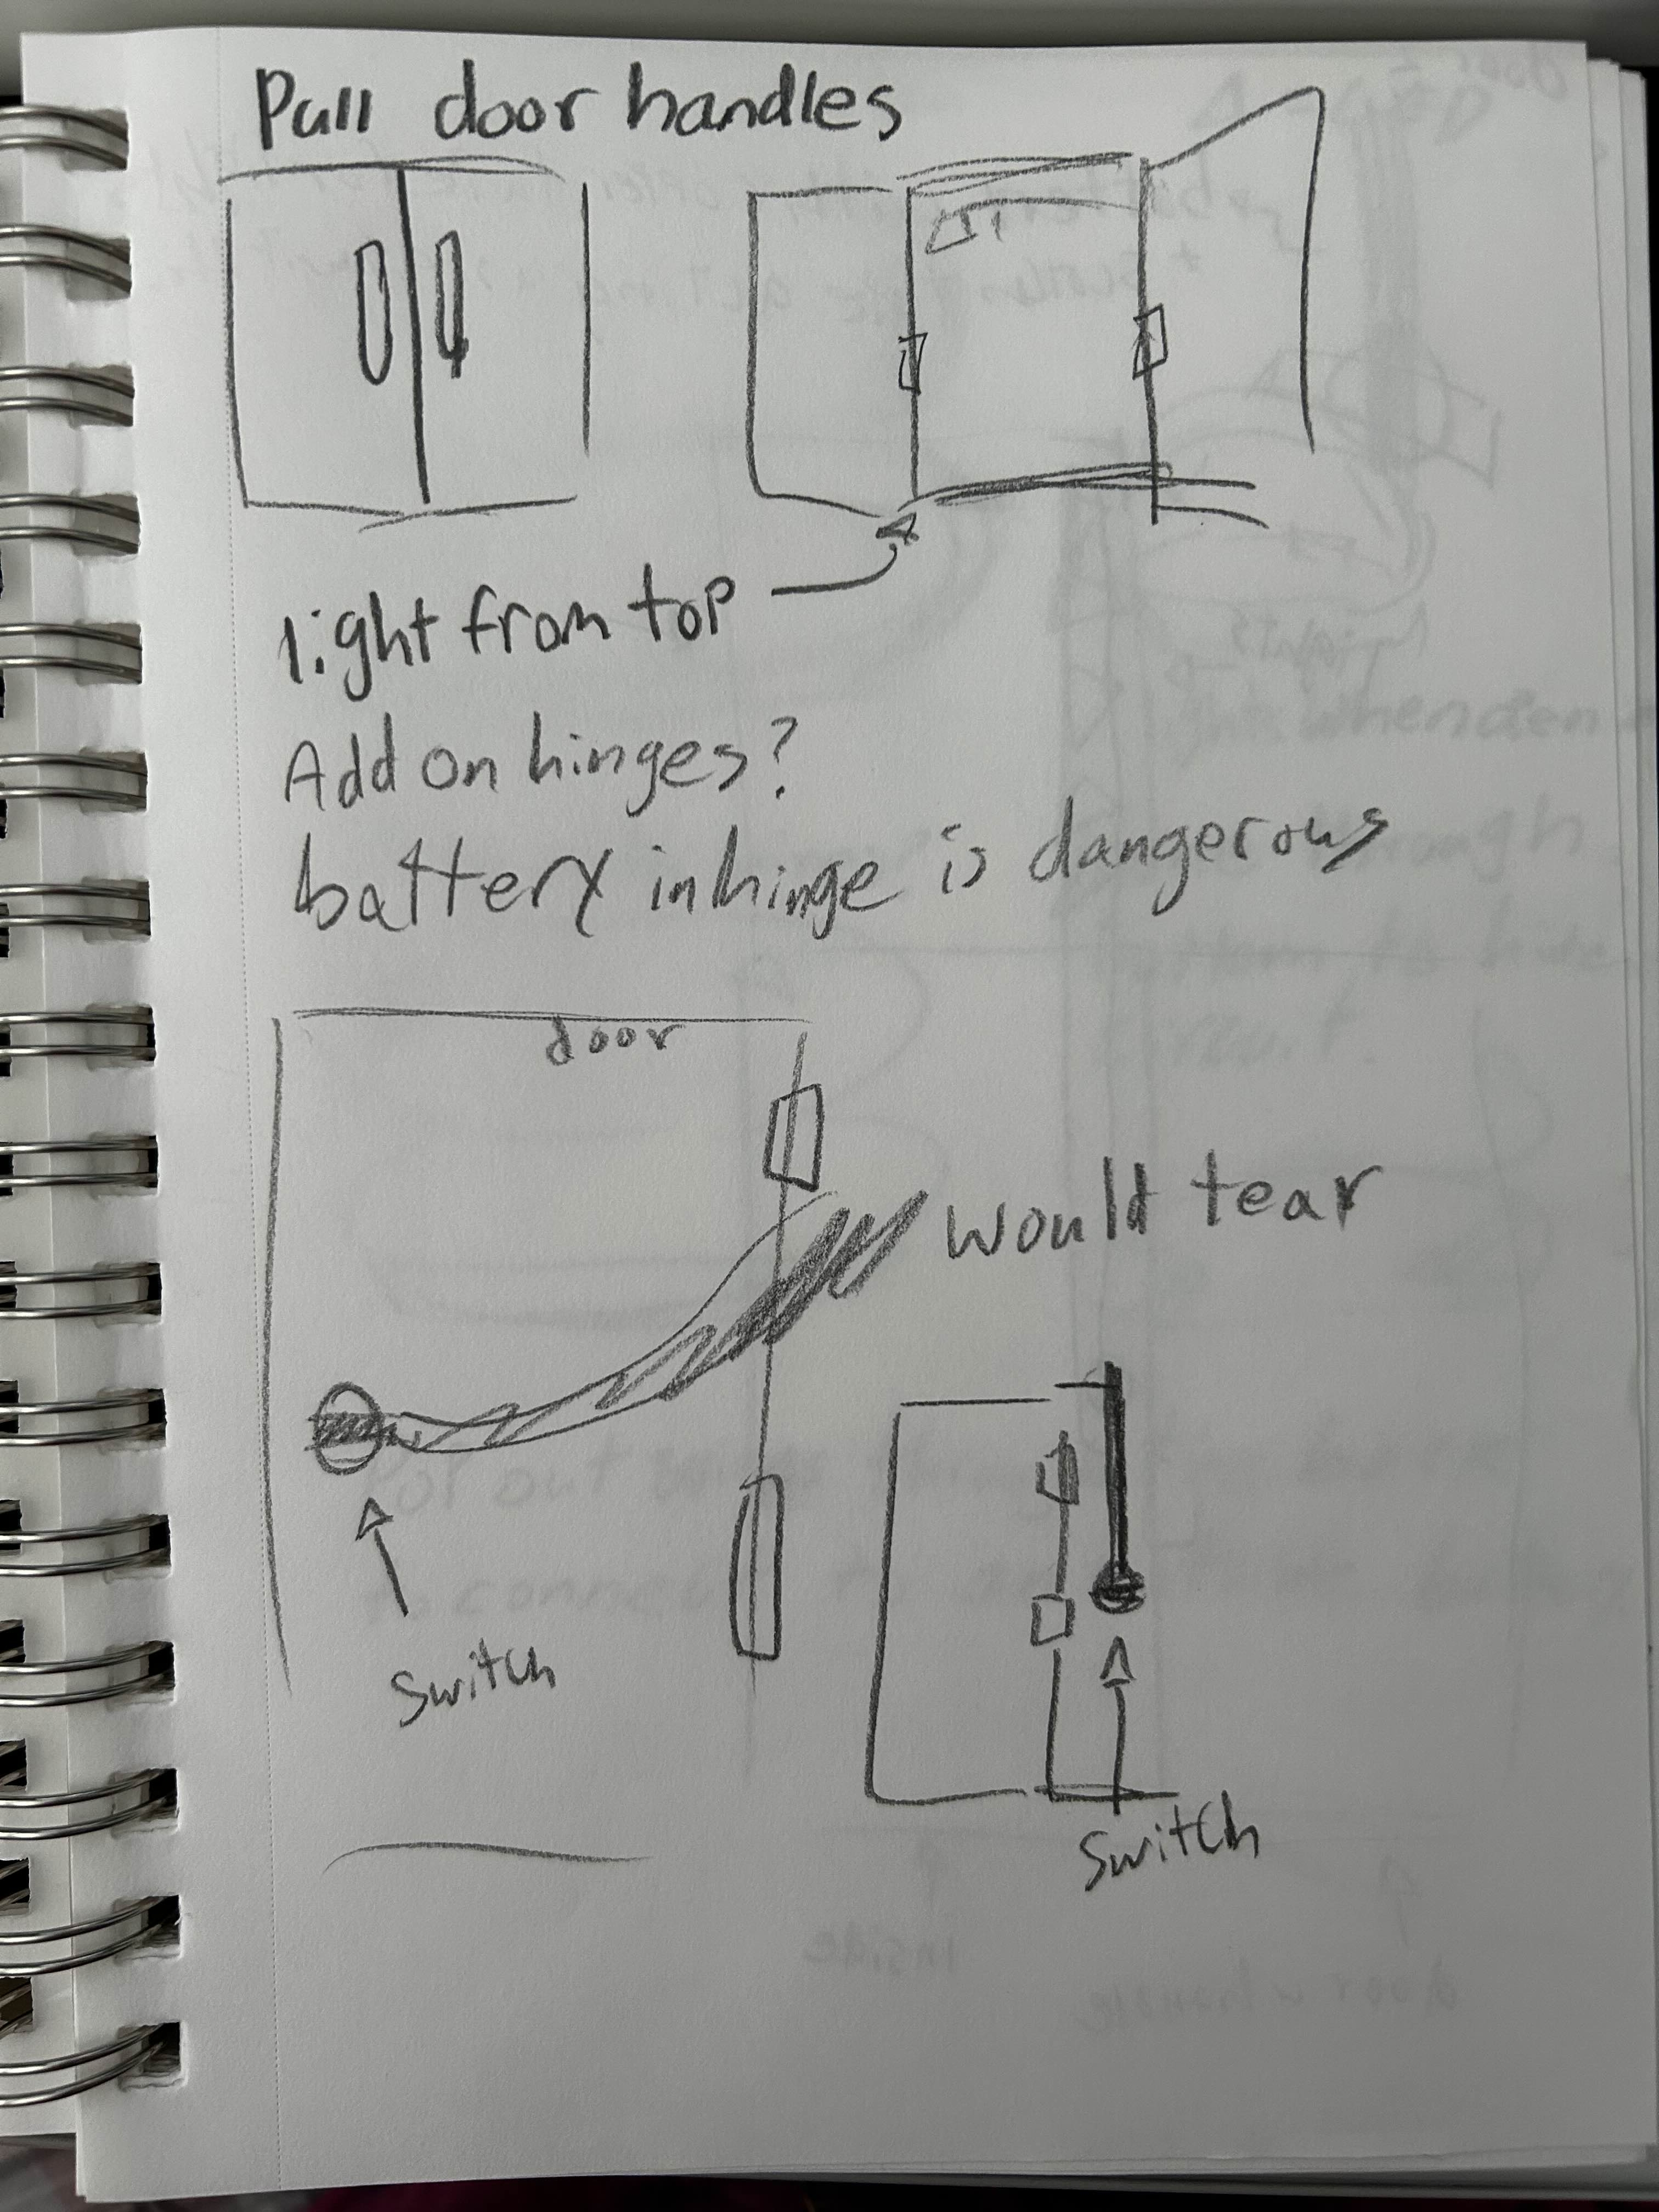 Pull door handles
light from top
Add on hinges?
battery in hinge is dangerous
door
would tear
Switch
Switch